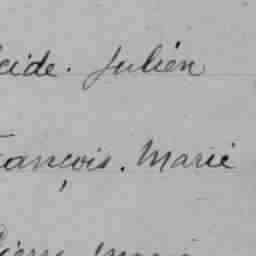 eide. Julien
ançois. Marie